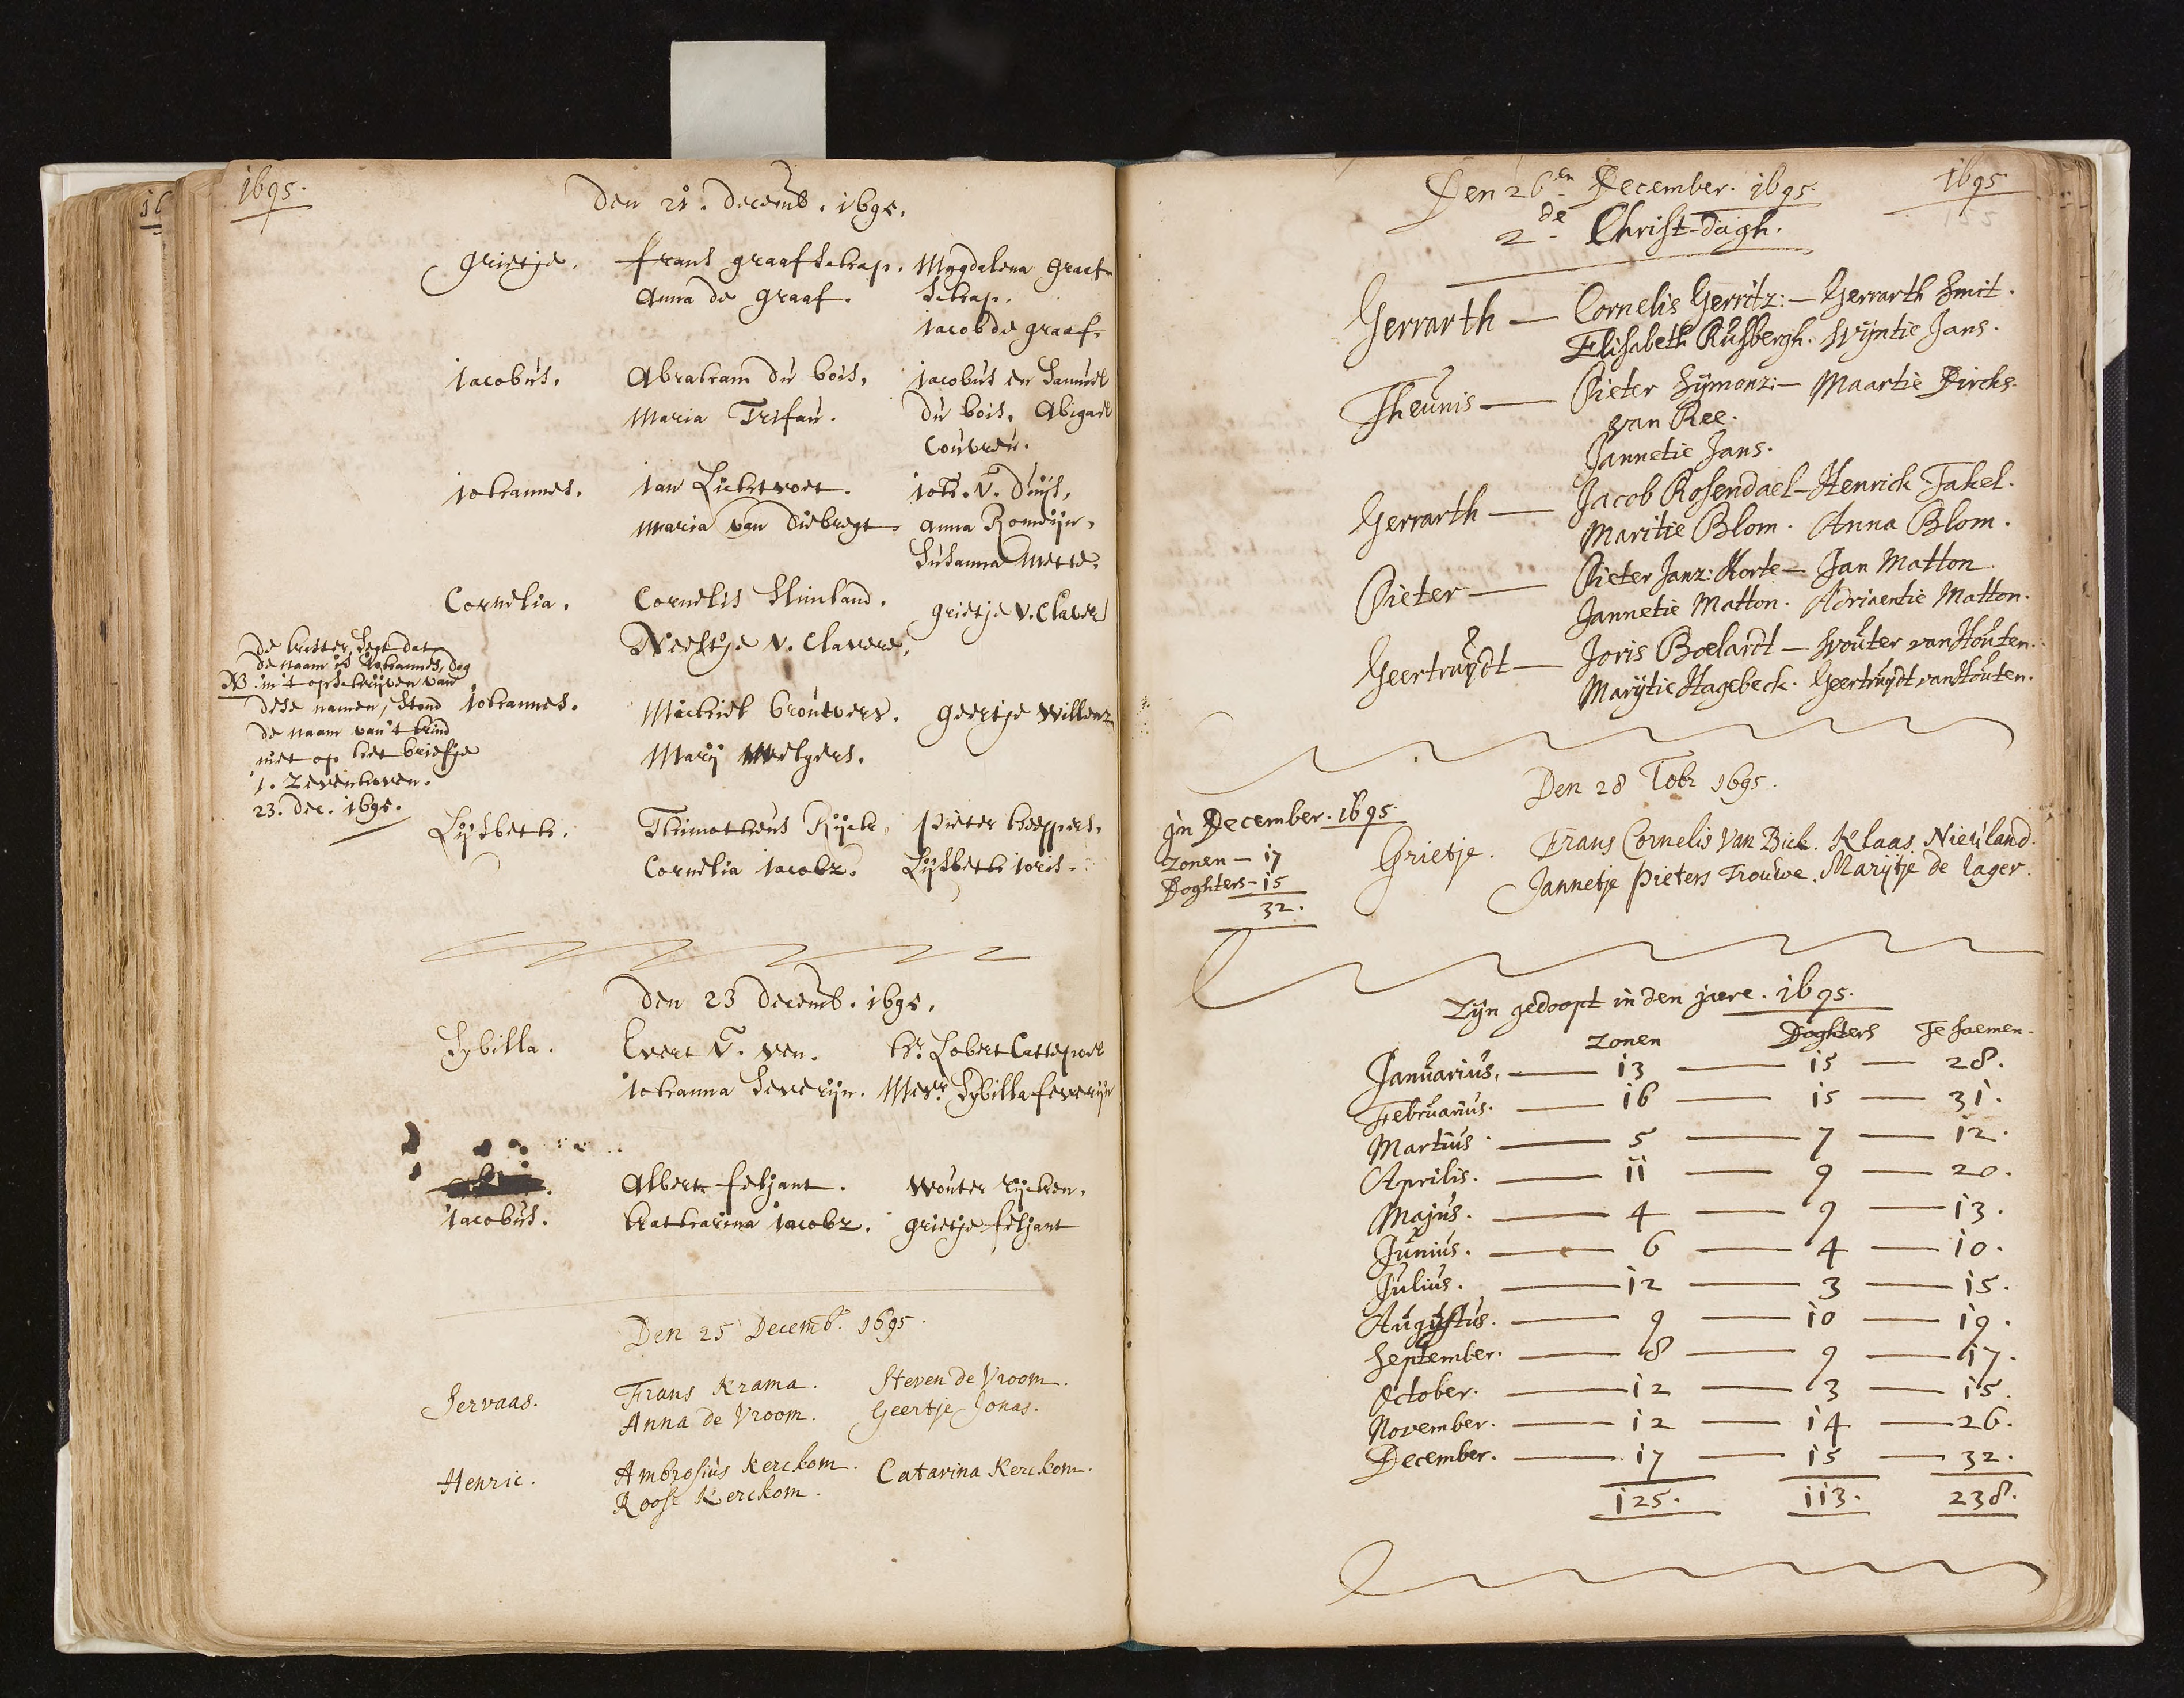 1695.
Den 21. Decemb. 1695.
Grietje. Frans graafschap. Magdalena graaf
Anna de graaf. schap.
Iacob de graaf.
Iacobus. Abraham du bois. Iacobus en Samuel
Maria Trifau. du bois. Abigael
Couvreu.
Iohannes. Ian Lichtvoet. Ioh. V. Duijs.
Maria van Diebregt. Anna Romeijn.
Susanna Mette.
Cornelia. Cornelis Slimland. Grietje V. Claver
Neeltje V. Clavere.
De koster segt dat
de naam is Iohannes, dog
NB. in 't opschrijven van
dese namen, stond
de naam van 't kind
niet op het briefje
I. Zevenhoven.
23. Dec. 1695.
Iohannes. Machiel brouwers. Geertje Willemz
Marij Melgers.
Lijsbeth. Thimotheus Rijck. Pieter keppers.
Cornelia Iacobz. Lijsbeth Ioris.
Den 23 Decemb. 1695.
Sybilla. Evert V. ven. Hr. Lobert Cattepoel
Iohanna Severijn. Mevr. Sybilla Severijn
Albert Feljant. Wouter Rijcken.
Iacobus. Katharina Iacobz. Grietje Feljant
Den 25 Decemb. 1695.
Servaas. Frans Krama. Steven de Vroom.
Anna de Vroom. Geertje Jonas.
Henric. Ambrosius Kerckom. Catarina Kerckom.
Roose Kerckom.
Den 26en December. 1695. 1695
2de Christ-dagh.
Gerrarth — Cornelis Gerritz: — Gerrarth Smit.
Elisabeth Rusbergh. Wijntie Jans.
Theunis — Pieter Sijmonz: — Maartie Dircks.
van Ree.
Jannetie Jans.
Gerrarth — Jacob Rosendael — Henrick Takel.
Maritie Blom. Anna Blom.
Pieter — Pieter Janz: Korte — Jan Matton
Jannetie Matton. Adriaentie Matton.
Geertruijdt — Joris Boelardt — Wouter van Houten.
Marijtie Hagebeck. Geertruijdt van Houten.
Den 28 Xobr 1695.
Jn December. 1695.
zonen — 17
Doghters — 15
32.
Grietje. Frans Cornelis Van Biek. Klaas Nieuland.
Jannetje Pieters Trouwe. Marijtje de lager.
Zijn gedoopt in den jaere. 1695.
zonen Doghters Te saemen.
Januarius. — 13 — 15 — 28.
Februarius. — 16 — 15 — 31.
Martius. — 5 — 7 — 12.
Aprilis. — 11 — 9 — 20.
Majus. — 4 — 9 — 13.
Junius. — 6 — 4 — 10.
Julius. — 12 — 3 — 15.
Augustus. — 9 — 10 — 19.
September. — 8 — 9 — 17.
October. — 12 — 3 — 15.
November. — 12 — 14 — 26.
December. — 17 — 15 — 32.
125. 113. 238.